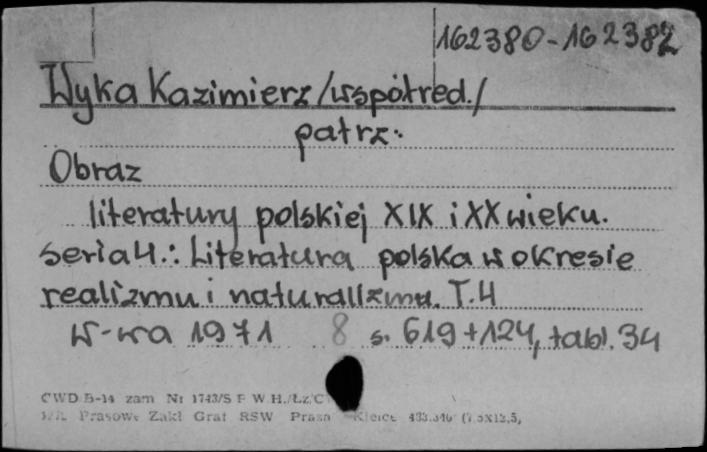 162380-162382
Wyka Kazimierz /współred./
patrz:
Obraz
literatury polskiej XIX i XX wieku.
seria 4.: Literatura polska w okresie
realizmu i naturalizmu. T.4
W-wa 1971 8 s. 619+124, tabl. 34
CWD B-14 zam Nr 1743/S F W.H./Łz/C
Prasowe Zakł Graf RSW Prasa Kielce (7,5X12,5,